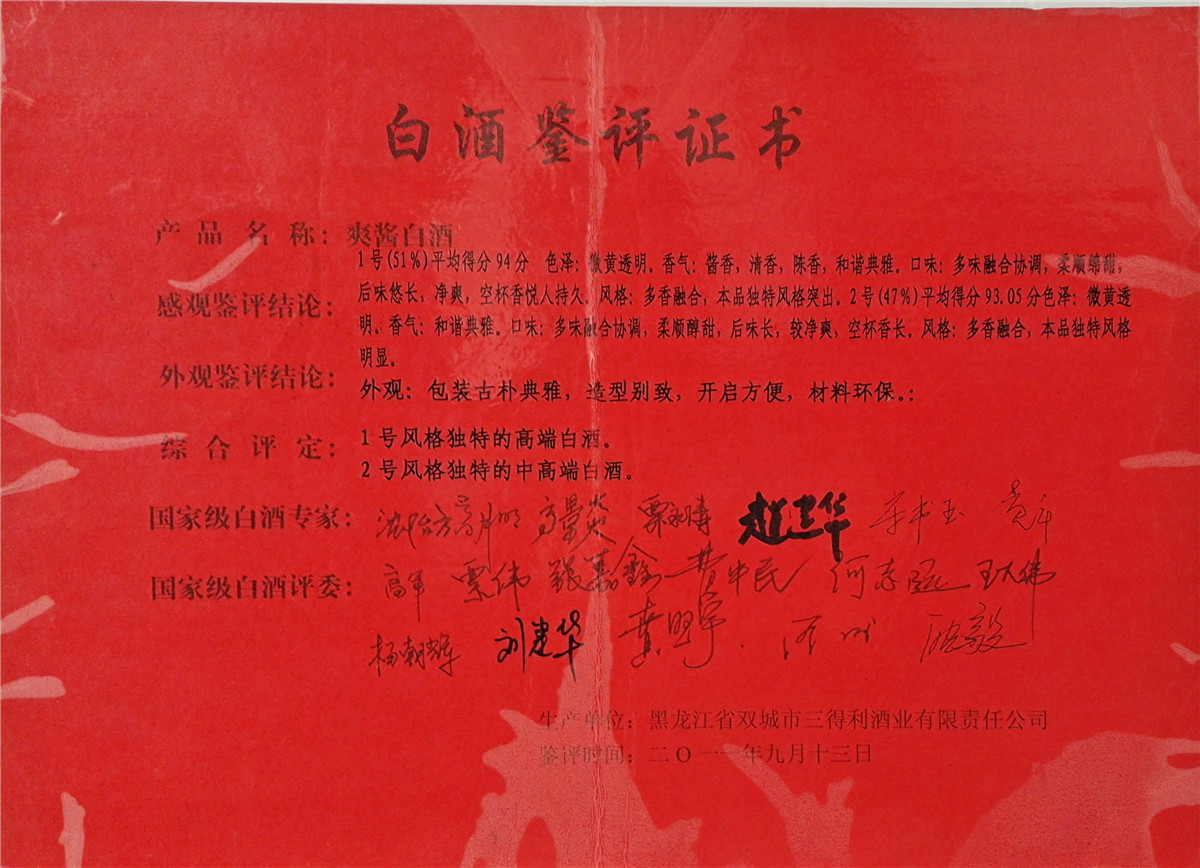 白酒鉴评证书
产品名称：爽酱白酒
1号(51%)平均得分94分 色泽：微黄透明。香气：酱香，清香，陈香，和谐典雅。口味：多味融合协调，柔顺绵甜，
后味悠长，净爽，空杯香悦人持久。风格：多香融合，本品独特风格突出。2号(47%)平均得分93.05分色泽：微黄透
感观鉴评结论：
明。香气：和谐典雅。口味：多味融合协调，柔顺醇甜，后味长，较净爽，空杯香长。风格：多香融合，本品独特风格
明显。
外观鉴评结论：
外观：包装古朴典雅，造型别致，开启方便，材料环保。：
综合评定：
1号风格独特的高端白酒。
2号风格独特的中高端白酒。
国家级白酒专家： 沈怡方 高月明 高景炎 栗永清 赵建华
国家级白酒评委： 高军 栗伟 张嘉鑫 黄中民 何志远 王大伟
杨朝辉 刘建华
生产单位：黑龙江省双城市三得利酒业有限责任公司
鉴评时间：二〇一一年九月十三日